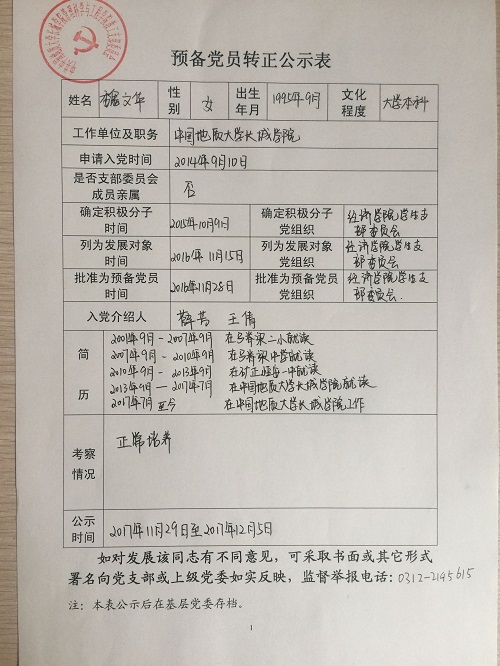 预备党员转正公示表
姓名 文华 性别 女 出生年月 1995年9月 文化程度 大学本科
工作单位及职务 中国地质大学长城学院
申请入党时间 2014年9月10日
是否支部委员会成员亲属 否
确定积极分子时间 2015年10月9日 确定积极分子党组织 经济学院学生支部委员会
列为发展对象时间 2016年11月15日 列为发展对象党组织 经济学院学生支部委员会
批准为预备党员时间 2016年11月28日 批准为预备党员党组织 经济学院学生支部委员会
入党介绍人 薛芳 王倩
简历
2001年9月-2007年9月 在马脊梁二小就读
2007年9月-2010年9月 在马脊梁中学就读
2010年9月-2013年9月 在矿一中就读
2013年9月—2017年7月 在中国地质大学长城学院就读
2017年7月至今 在中国地质大学长城学院工作
考察情况 正常培养
公示时间 2017年11月29日至2017年12月5日
如对发展该同志有不同意见，可采取书面或其它形式
署名向党支部或上级党委如实反映，监督举报电话：0312-2195615
注：本表公示后在基层党委存档。
1